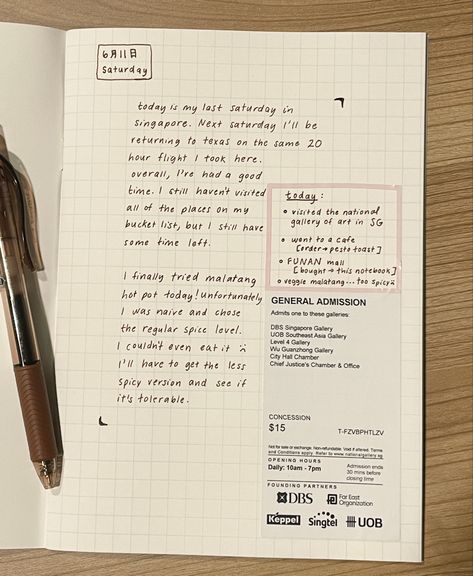 6月11日
Saturday
today is my last saturday in
singapore. Next saturday I'll be
returning to texas on the same 20
hour flight I took here.
overall, I've had a good
time. I still haven't visited
all of the places on my
bucket list, but I still have
some time left.
I finally tried malatang
hot pot today! Unfortunately
I was naive and chose
the regular spice level.
I couldn't even eat it
I'll have to get the less
spicy version and see if
it's tolerable.
today:
visited the national
gallery of art in SG
went to a cafe
[order→ pesto toast]
FUNAN mall
[bought→ this notebook]
veggie malatang... too spicy
GENERAL ADMISSION
Admits one to these galleries:
DBS Singapore Gallery
UOB Southeast Asia Gallery
Level 4 Gallery
Wu Guanzhong Gallery
City Hall Chamber
Chief Justice's Chamber & Office
CONCESSION
$15
T-FZVBPHTLZV
Not for sale or exchange. Non-refundable. Void if altered. Terms
and Conditions apply. Refer to www.nationalgallery.sg
OPENING HOURS
Daily: 10am - 7pm
Admission ends
30 mins before
closing time
FOUNDING PARTNERS
DBS
Far East
Organization
Keppel
Singtel
UOB